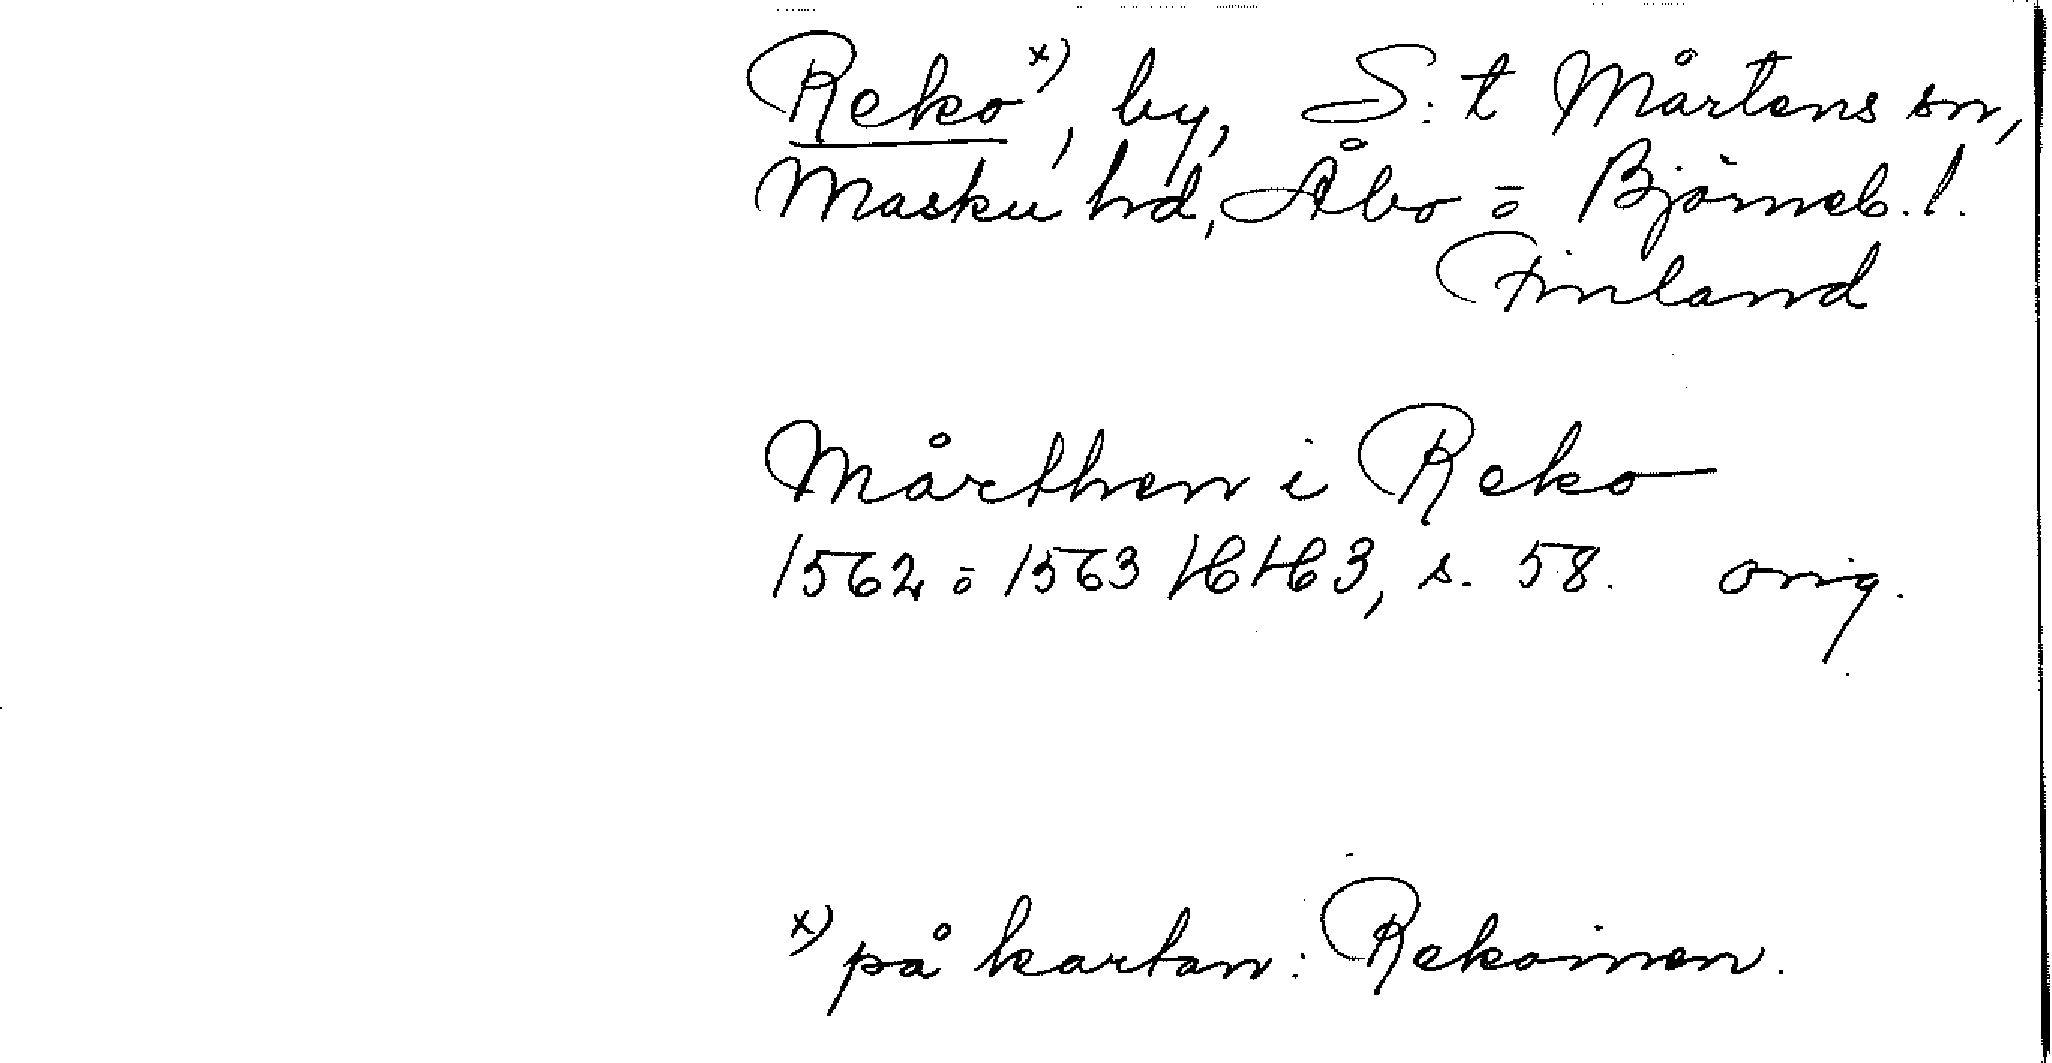 Reko x), by, S:t Mårtens sn,
Masku hd, Åbo o Björneb. l.
Finland
Mårthen i Reko
1562 o 1563 HH 3, s. 58. orig.
x) på kartan: Rekoinen.